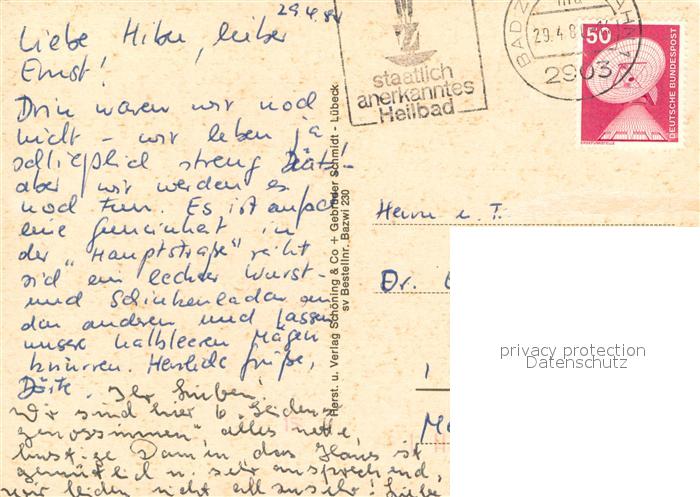 29.4.84
Liebe Hilu, lieber
Ernst!
Drin waren wir noch
nicht - wir leben ja
schließlich streng Diät! -
aber wir werden es
noch tun. Es ist einfach
eine Gemeinheit in
der "Hauptstraße" reiht
sich ein leckrer Wurst-
und Schinkenladen an
den anderen und lassen
unsere halbleeren Mägen
knurren. Herzliche Grüße,
Dörte. Ihr Lieben!
Wir sind hier 6 "Leidens-
genossinnen" alles nette,
lustige Damen, das Haus ist
gemütlich u. sehr ansprechend,
wir leiden nicht allzusehr! Liebe
Herst. u. Verlag Schöning & Co + Gebrüder Schmidt - Lübeck
sv Bestellnr. Bazwi 230
staatlich
anerkanntes
Heilbad
BAD Z
29.4.8
2903
50
DEUTSCHE BUNDESPOST
ERDEFUNKSTELLE
Herrn u. T.
Dr.
1
privacy protection
Datenschutz